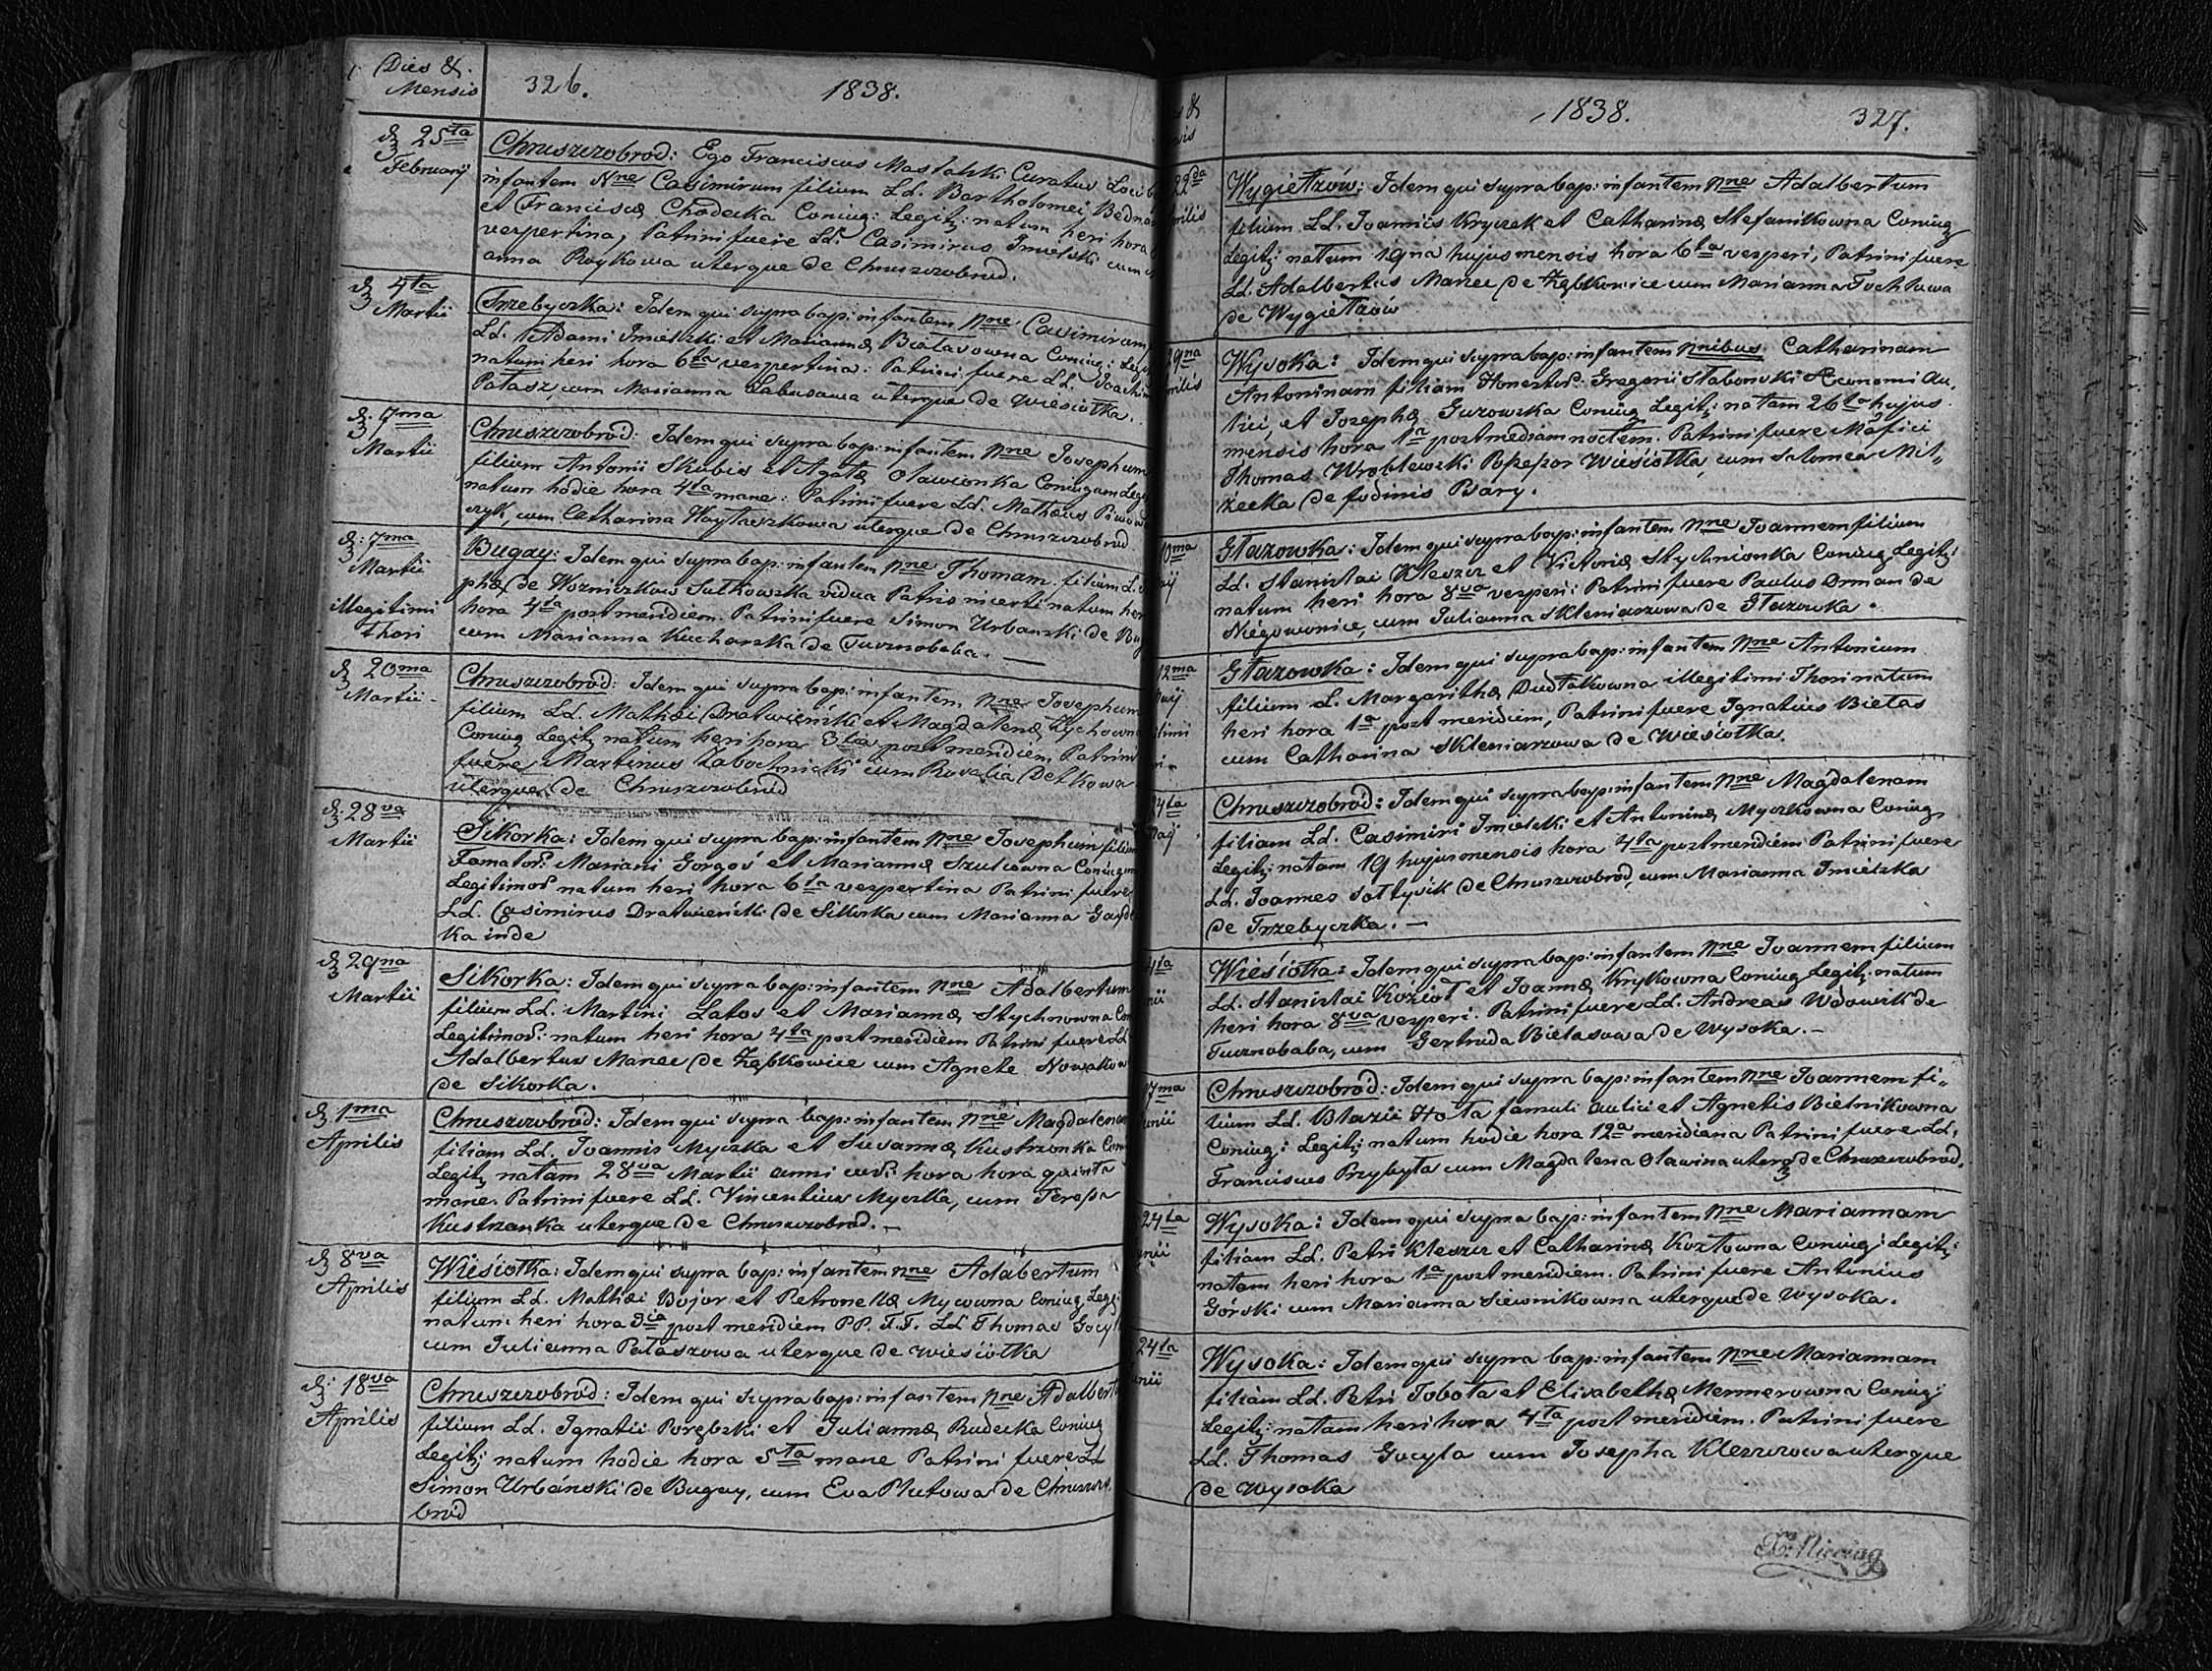 Dies &
Mensis
326.
1838.
d 25ta
Februarij
Chruszczobrod: Ego Franciscus Curatus Loci
infantem Nne Casimirum filium Ld. Bartholomei
et Franciscæ Chodecka Coniug: Legitj: natum heri hora
vespertina, Patrini fuere Ld. Casimirus Imielski cum
anna Roykowa uterque de Chruszczobrod.
d 4ta
Martii
Trzebyczka: Idem qui supra bap: infantem Nne Casimirum
Ld. Adami Imielski et Mariannæ Bielasowna Coniug: Legit
natum heri hora 6ta vespertina: Patrini fuere Ld. Joachim
Patasz, cum Marianna Labusowa uterque de Wiesiołka.
d. 7ma
Martii
Chruszczobrod: Idem qui supra bap: infantem Nne Josephum
filium Antonii Skubis et Agatæ Olawionka Coniugum Legi
natum hodie hora 4ta mane: Patrini fuere Ld. Mathæus
czyk, cum Catharina Woytaszkowa uterque de Chruszczobrod
d: 7ma
Martii
illegitimi
thori
Bugay: Idem qui supra bap: infantem Nne Thomam filium L.
phæ de Wozniczkow Sutkowska vidua Patris incerti natum heri
hora 4ta post meridiem. Patrini fuere Simon Urbanski de Bug
cum Marianna Kucharska de Tucznobaba. —
d 20ma
Martii
Chruszczobrod: Idem qui supra bap: infantem Nne Josephum
filium Ld. Mathæi Dratwieński et Magdalenæ Zychowna
Coniug Legitj natum heri hora 3tia post meridiem Patrini
fuere Martinus Labochnicki cum Rosalia Detkowa
uterque de Chruszczobrod
d 28va
Martii
Sikorka: Idem qui supra bap: infantem Nne Josephum filium
Famator: Mariani Gorgoś et Mariannæ Szulcowna Coniugum
Legitimor natum heri hora 6ta vespertina Patrini fuere
Ld. Casimirus Dratwieński de Sikorka cum Marianna Gayde
ka inde
d 29na
Martii
Sikorka: Idem qui supra bap: infantem Nne Adalbertum
filium Ld. Martini Latos et Mariannæ Stychnowna Con
Legitimor: natum heri hora 4ta post meridiem Patrini fuere Ld
Adalbertus Maniec de Ząbkowice cum Agnete Nowakowa
de Sikorka.
d 1ma
Aprilis
Chruszczobrod: Idem qui supra bap: infantem Nne Magdalenam
filiam Ld. Joannis Myczka et Susannæ Kustrzonka Con
Legitj natam 28va Martii anni hora hora quinta
mane. Patrini fuere Ld. Vincentius Myczka, cum Teressa
Kustrzanka uterque de Chruszczobrod. —
d 8va
Aprilis
Wiesiołka: Idem qui supra bap: infantem Nne Adabertum
filium Ld. Mathæi Bojor et Petronellæ Mycowna Coniug Legi
natum heri hora 3cia post meridiem PP. F.F. Ld Thomas Gocył
cum Julianna Pataszowa uterque de wiesiołka
d: 18va
Aprilis
Chruszczobrod: Idem qui supra bap: infantem Nne Adalbert
filium Ld. Ignatii Porębski et Juliannæ Rudecka Coniug
Legitj natum hodie hora 5ta mane Patrini fuere Ld
Simon Urbánski de Bugay, cum Eva Plutowa de Chruszczo
brod
1838.
327.
22da
Aprilis
Wygiełzów: Idem qui supra bap: infantem Nne Adalbertum
filium Ld. Joannis Kryczek et Catharinæ Stefanikowna Coniug
Legitj: natum 19na hujus mensis hora 6ta vesperi, Patrini fuere
Ld. Adalbertus Maniec de Ząbkowice cum Marianna Fochtowa
de Wygiełzów
29na
Aprilis
Wysoka: Idem qui supra bap: infantem Nnibus Catharinam
Antoninam filiam Honestor: Gregorii Stabonski Œconomi Au„
lici, et Josephæ Gurowska Coniug Legitj: natam 26ta hujus
mensis hora 1a post mediam noctem. Patrini fuere Mafici
Thomas Wroblewski Possessor Wiesiołka, cum Salomea Mil„
żecka de fodinis Bary.
10ma
Głazowka: Idem qui supra bap: infantem Nne Joannem filium
Ld. Stanislai Kleszcz et Victoriæ Stychnionka Coniug Legitj:
natum heri hora 8va vesperi: Patrini fuere Paulus Orman de
Niegowonice, cum Julianna Skleniarzowa de Głazowka.
12ma
Głazowka: Idem qui supra bap: infantem Nne Antonium
filium L. Margarithæ Dudłakowna illegitimi Thori natum
heri hora 1a post meridiem, Patrini fuere Ignatius Bielas
cum Catharina Skleniarzowa de Wiesiołka.
24ta
Chruszczobrod: Idem qui supra bap: infantem Nne Magdalenam
filiam Ld. Casimiri Imielski et Antoninæ Myczkowna Coniug
Legitj: natam 19 hujus mensis hora 4ta post meridiem Patrini fuere
Ld. Joannes Sołtysik de Chruszczobrod, cum Marianna Imielska
de Trzebyczka. —
Wiesiołka: Idem qui supra bap: infantem Nne Joannem filium
Ld. Stanislai Kozioł et Joannæ Krykowna Coniug Legitj: natum
heri hora 8va vesperi. Patrini fuere Ld. Andreas Wdowik de
Tucznobaba, cum Gertruda Bielasowa de Wysoka. —
17ma
Chruszczobrod: Idem qui supra bap: infantem Nne Joannem fi„
lium Ld. Blazii Hota famuli aulici et Agnetis Bielnikowna
Coniug: Legitj: natum hodie hora 12a meridiana Patrini fuere Ld.
Franciscus Przybyła cum Magdalena Olawina uterq de Chruszczobrod.
24ta
Wysoka: Idem qui supra bap: infantem Nne Mariannam
filiam Ld. Petri Kleszcz et Catharinæ Kozłowna Coniug: Legitj:
natam heri hora 1a post meridiem. Patrini fuere Antonius
Gorski cum Marianna Siewnikowna uterque de Wysoka.
24ta
Wysoka: Idem qui supra bap: infantem Nne Mariannam
filiam Ld. Petri Tobota et Elisabethæ Mermerowna Coniug:
Legitj: natam heri hora 4ta post meridiem. Patrini fuere
Ld. Thomas Gocyla cum Josepha Kleszczowa uterque
de Wysoka